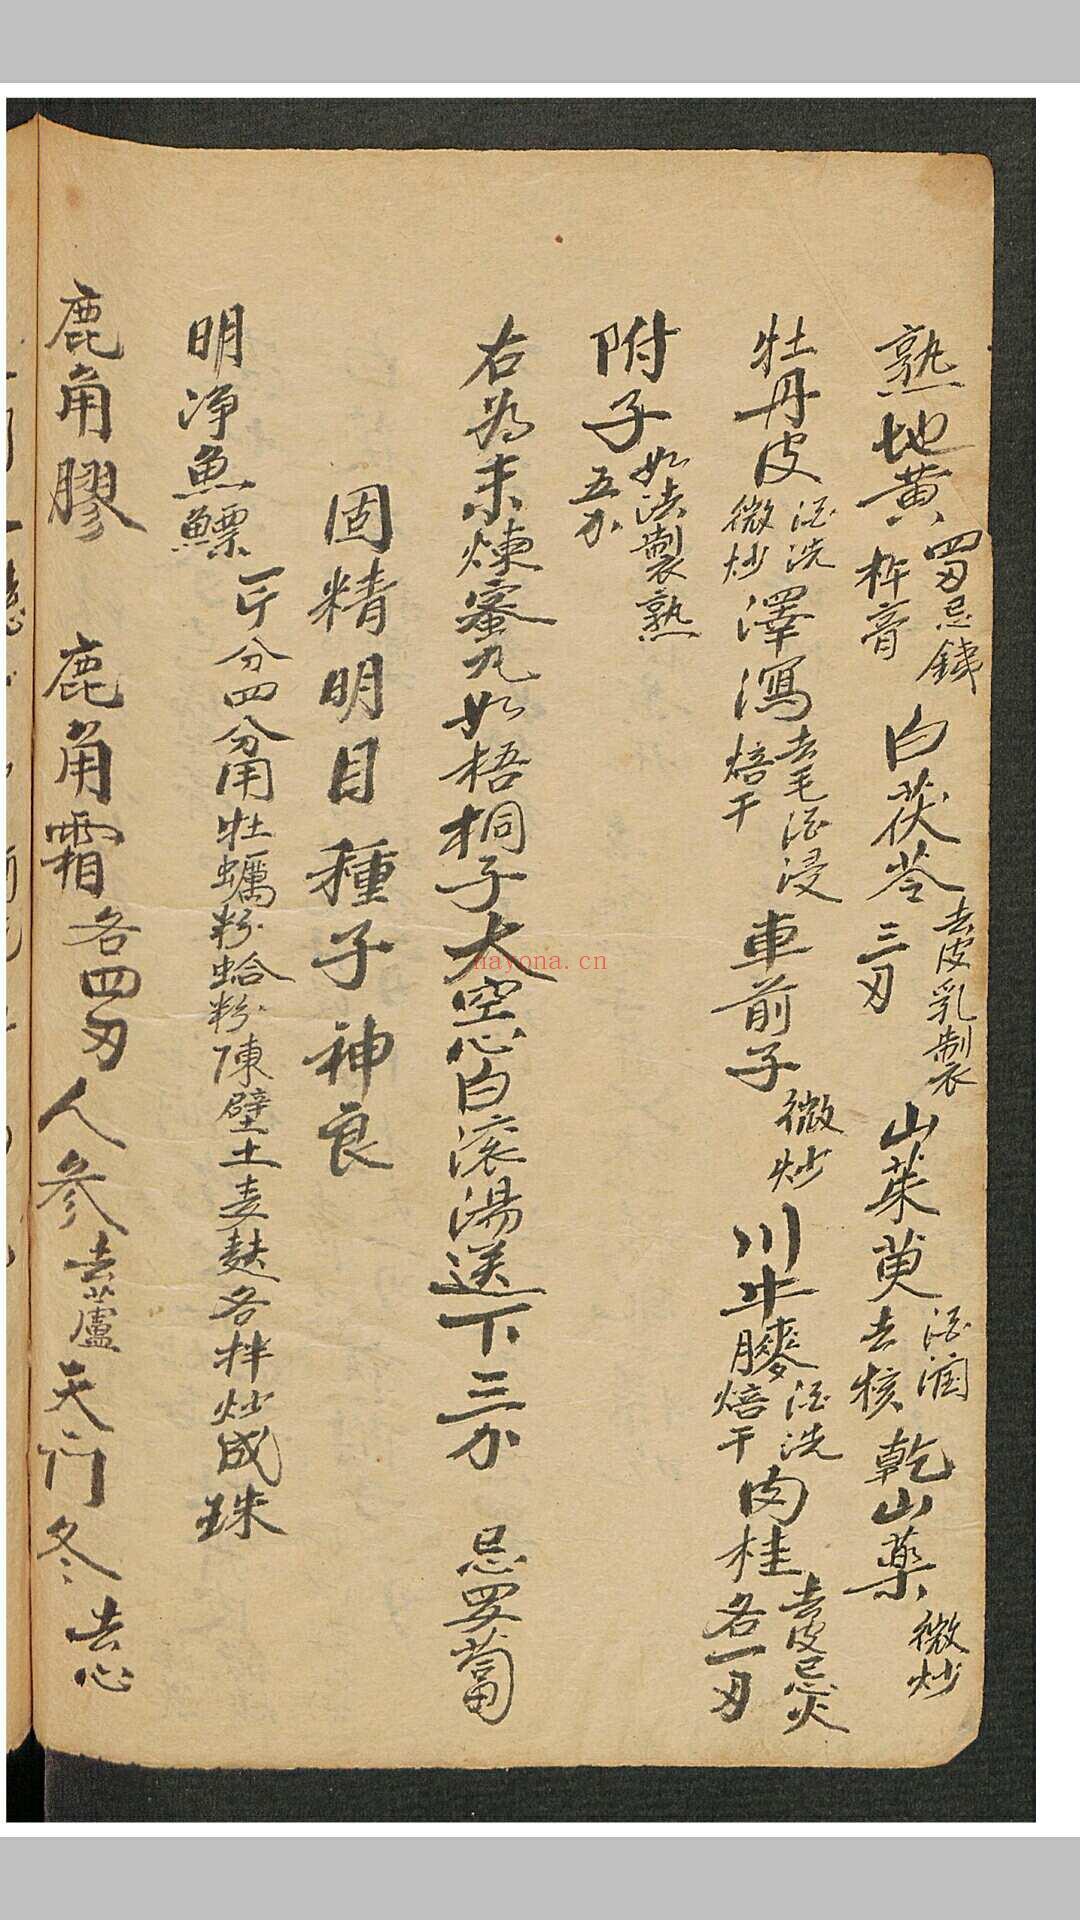 熟地黄四刄忌鉄杵膏 白茯苓去皮乳製三刄 山茱萸酒润去核 乾山薬微炒
牡丹皮酒洗微炒 澤瀉去毛酒浸焙干 車前子微炒 川牛膝酒洗焙干 肉桂去皮忌火各一刄
附子如法製熟五分
右為末煉蜜丸如梧桐子大空心白滚湯送下三分 忌罗蔔
固精明目種子神良
明净魚鰾一斤分四分用牡蠣粉蛤粉陳壁土麦麸各拌炒成珠
鹿角膠 鹿角霜各四刄 人参去蘆 天门冬去心
nayona.cn